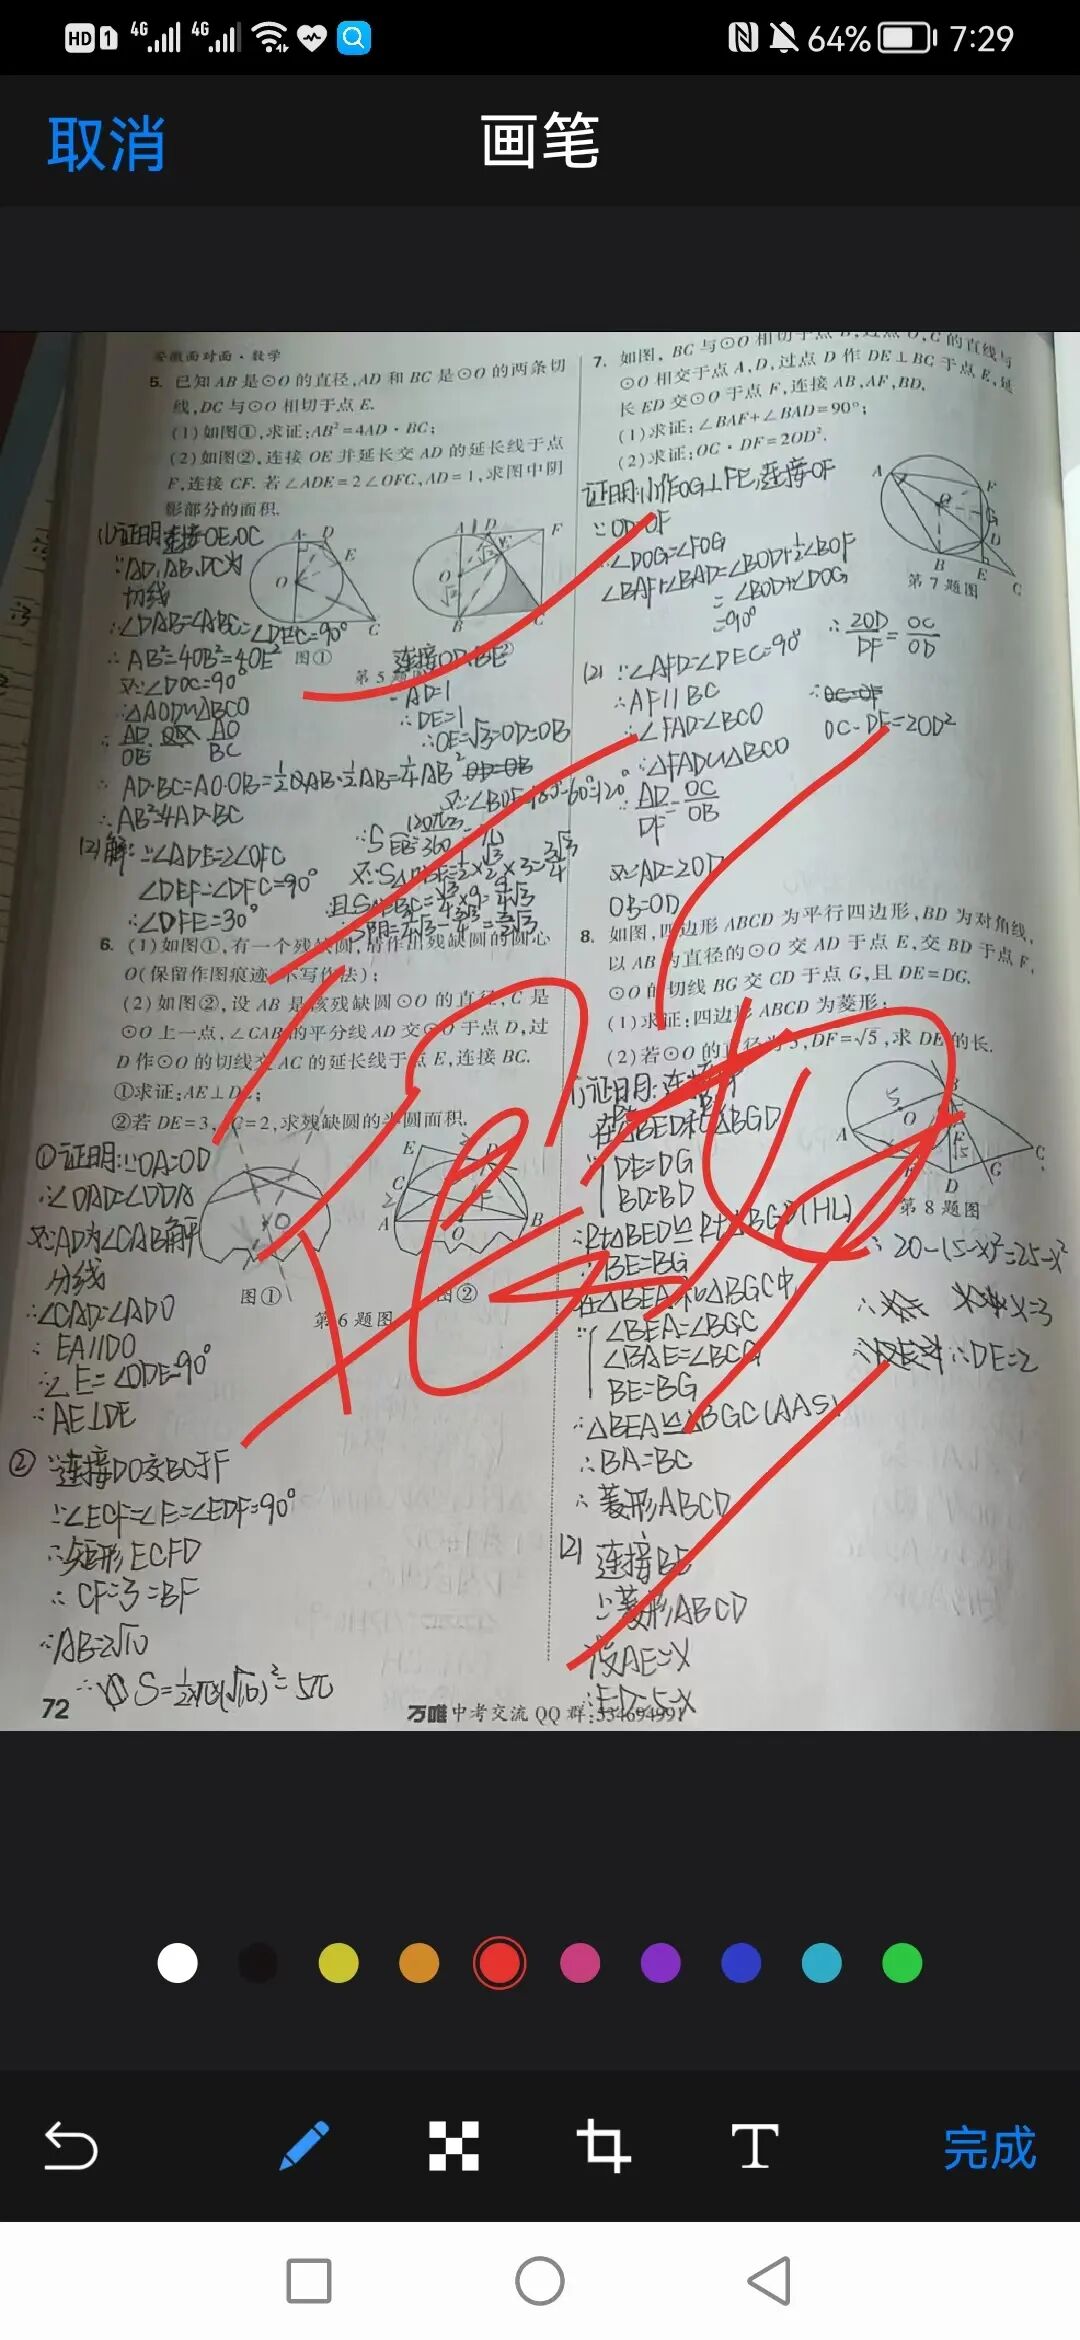 HD 1 4G 4G 64% 7:29
取消 画笔
安徽面对面·数学
5. 已知 AB 是⊙O 的直径,AD 和 BC 是⊙O 的两条切
线,DC 与⊙O 相切于点 E.
(1)如图①,求证:AB²=4AD·BC;
(2)如图②,连接 OE 并延长交 AD 的延长线于点
F,连接 CF. 若∠ADE=2∠OFC,AD=1,求图中阴
影部分的面积.
(1)证明:连接OE,OC
∵AD,AB,DC为
切线
∴∠DAB=∠ABC=∠DEC=90°
∴AB²=4OB²=4OE²
图①
又∵∠DOC=90°
∴△AOD∽△BCO
∴AD/OB=AO/BC
∴AD·BC=AO·OB=½AB·½AB=¼AB²
∴AB²=4AD·BC
(2)解:∵∠ADE=2∠OFC
∠DEF=∠DFC=90°
∴∠DFE=30°
∵AD=1
∴DE=1
∴OE=√3=OD=OB
6. (1)如图①,有一个残缺圆,请作出残缺圆的圆心
O(保留作图痕迹,不写作法);
(2)如图②,设 AB 是该残缺圆⊙O 的直径,C 是
⊙O 上一点,∠CAB 的平分线 AD 交⊙O 于点 D,过
D 作⊙O 的切线交 AC 的延长线于点 E,连接 BC.
①求证:AE⊥DE;
②若 DE=3,AC=2,求残缺圆的半圆面积.
①证明:∵OA=OD
∴∠OAD=∠ODA
又∵AD为∠CAB角平
分线
∴∠CAD=∠ADO
∴EA∥DO
∴∠E=∠ODE=90°
∴AE⊥DE
图① 图②
第6题图
② ∵连接DO交BC于F
∵∠ECF=∠E=∠EDF=90°
∴矩形ECFD
∴CF=3=BF
∴AB=2√10
∴S=½π(√10)²=5π
72
7. 如图, BC 与⊙O 相切于点 B,过点 O,C 的直线与
⊙O 相交于点 A,D,过点 D 作 DE⊥BC 于点 E,延
长 ED 交⊙O 于点 F,连接 AB,AF,BD.
(1)求证:∠BAF+∠BAD=90°;
(2)求证:OC·DF=2OD².
证明:(1)作OG⊥FE,连接OF
∵OD=OF
∴∠DOG=∠FOG
∠BAF+∠BAD=∠BOD+½∠BOF
=∠BOD+∠DOG
=90°
第7题图
(2) ∵∠AFD=∠DEC=90°
∴AF∥BC
∴∠FAD=∠BCO
∴△FAD∽△BCO
∴AD/DF=OC/OB
又∵AD=2OD
OB=OD
∴2OD/DF=OC/OD
OC·DF=2OD²
8. 如图,四边形 ABCD 为平行四边形,BD 为对角线,
以 AB 为直径的⊙O 交 AD 于点 E,交 BD 于点 F,
⊙O 的切线 BG 交 CD 于点 G,且 DE=DG.
(1)求证:四边形 ABCD 为菱形;
(2)若⊙O 的直径为 5,DF=√5,求 DE 的长.
(1)证明:连接
在△BED和△BGD
DE=DG
BD=BD
∴Rt△BED≌Rt△BGD(HL)
∴BE=BG
在△BEA和△BGC中
∠BEA=∠BGC
∠BAE=∠BCG
BE=BG
∴△BEA≌△BGC(AAS)
∴BA=BC
∴菱形ABCD
第8题图
(2) 连接BE
∵菱形ABCD
设AE=x
∴ED=5-x
∴20-(5-x)²=25-x²
x=3
∴DE=2
万唯中考交流 QQ 群:
完成